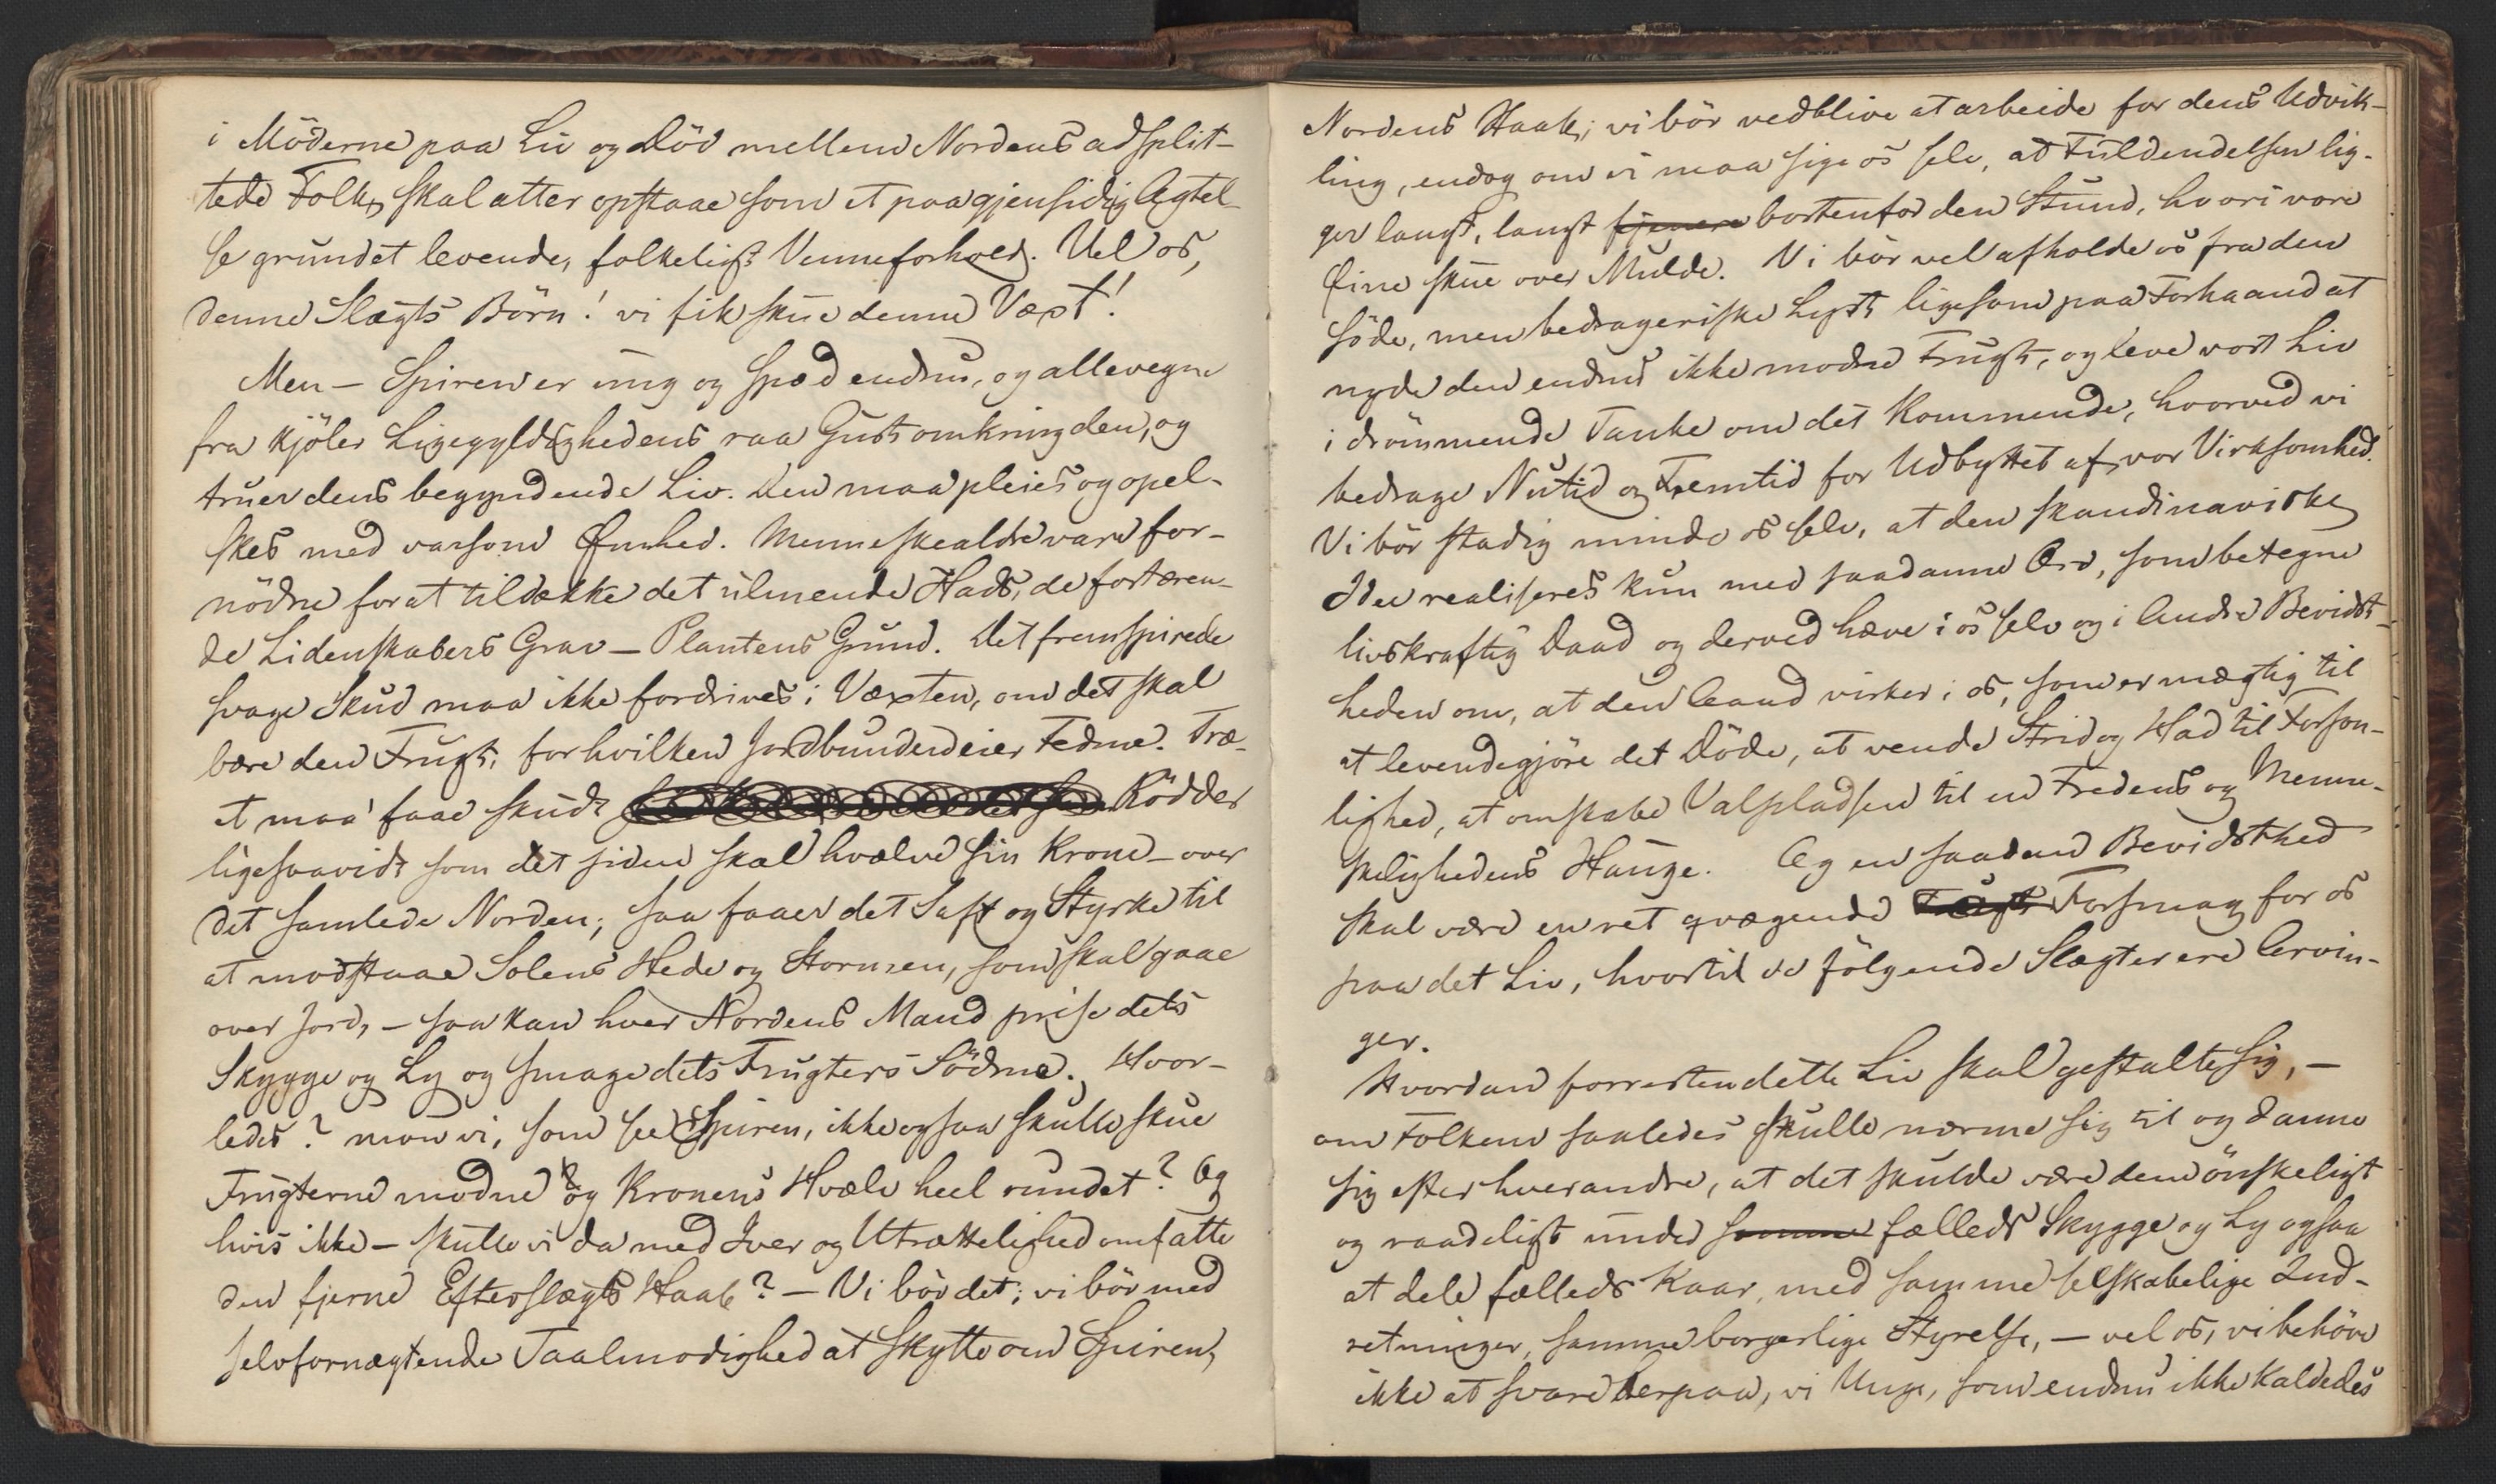 i Möderne paa Liv og Död mellem Nordens adsplit-
tede Folk, skal atter opstaae som et paa gjensidig Agtel-
se grundet levende, folkeligt Venneforhold. Vel os,
denne Slægts Börn! vi fik skue denne Væxt!
Men – Spiren er ung og spæd endnu, og allevegne
fra kjöler Ligegyldighedens raa Gust omkring den, og
truer dens begyndende Liv. Den maa pleies og opel-
skes med varsom Ømhed. Menneskealdre vare for-
nödne for at tildække det ulmende Hads, de fortæren-
de Lidenskabers Grav – Plantens Grund. Det fremspirede
svage Skud maa ikke fordrives i Væxten, om det skal
bære den Frugt, for hvilken Jordbunden eier Fedme. Træ-
et maa faae skudt Rödder
ligesaavidt som det siden skal hvælve sin Krone – over
det samlede Norden; saa faaer det Saft og Styrke til
at modstaae Solens Hede og Stormen, som skal gaae
over Jord, – saa kan hver Nordens Mand prise dets
Skygge og Ly og smage dets Frugters Södme. Hvor-
ledes? mon vi, som see Spiren, ikke ogsaa skulle skue
Frugterne modne og Kronens Hvælv heel rundet? Og
hvis ikke – skulle vi da med Iver og Utrættelighed omfatte
den fjerne Efterslægts Haab? – Vi bör det; vi bör med
selvfornægtende Taalmodighed at skytte om Spiren,
Nordens Haab; vi bör vedblive at arbeide for dens Udvik-
ling, endog om vi maa sige os selv, at Fuldendelsen lig-
ger langt, langt fjernere bortenfor den Stund, hvori vore
Øine skue over Mulde. Vi bör vel afholde os fra den
söde, men bedrageriske Lyst ligesom paa Forhaand at
nyde den endnu ikke modne Frugt, og leve vort Liv
i drömmende Tanke om det Kommende, hvorved vi
bedrage Nutid og Fremtid for Udbyttet af vor Virksomhed.
Vi bör stadig minde os selv, at den skandinaviske
Idee realiseres kun med saadanne Ord, som betegne
livskraftig Daad og derved hæve i os selv og i Andre Bevidst-
heden om, at den Aand virker i os, som er mægtig til
at levendegjöre det Döde, at vende Strid og Had til Forson-
lighed, at omskabe Valpladsen til en Fredens og Menne-
skelighedens Hauge. Og en saadan Bevidsthed
skal være en ret qvægende Frugt Forsmag for os
paa det Liv, hvortil de fölgende Slægter ere Arvin-
ger.
Hvordan forresten dette Liv skal gestalte sig, –
om Folkene saaledes skulle nærme sig til og danne
sig efter hverandre, at det skulde være dem önskeligt
og raadeligt under samme fælleds Skygge og Ly ogsaa
at dele fælleds Kaar, med samme selskabelige Ind-
retninger, samme borgerlige Styrelse, – vel os, vi behöve
ikke at svare derpaa, vi Unge, som endnu ikke kaldedes